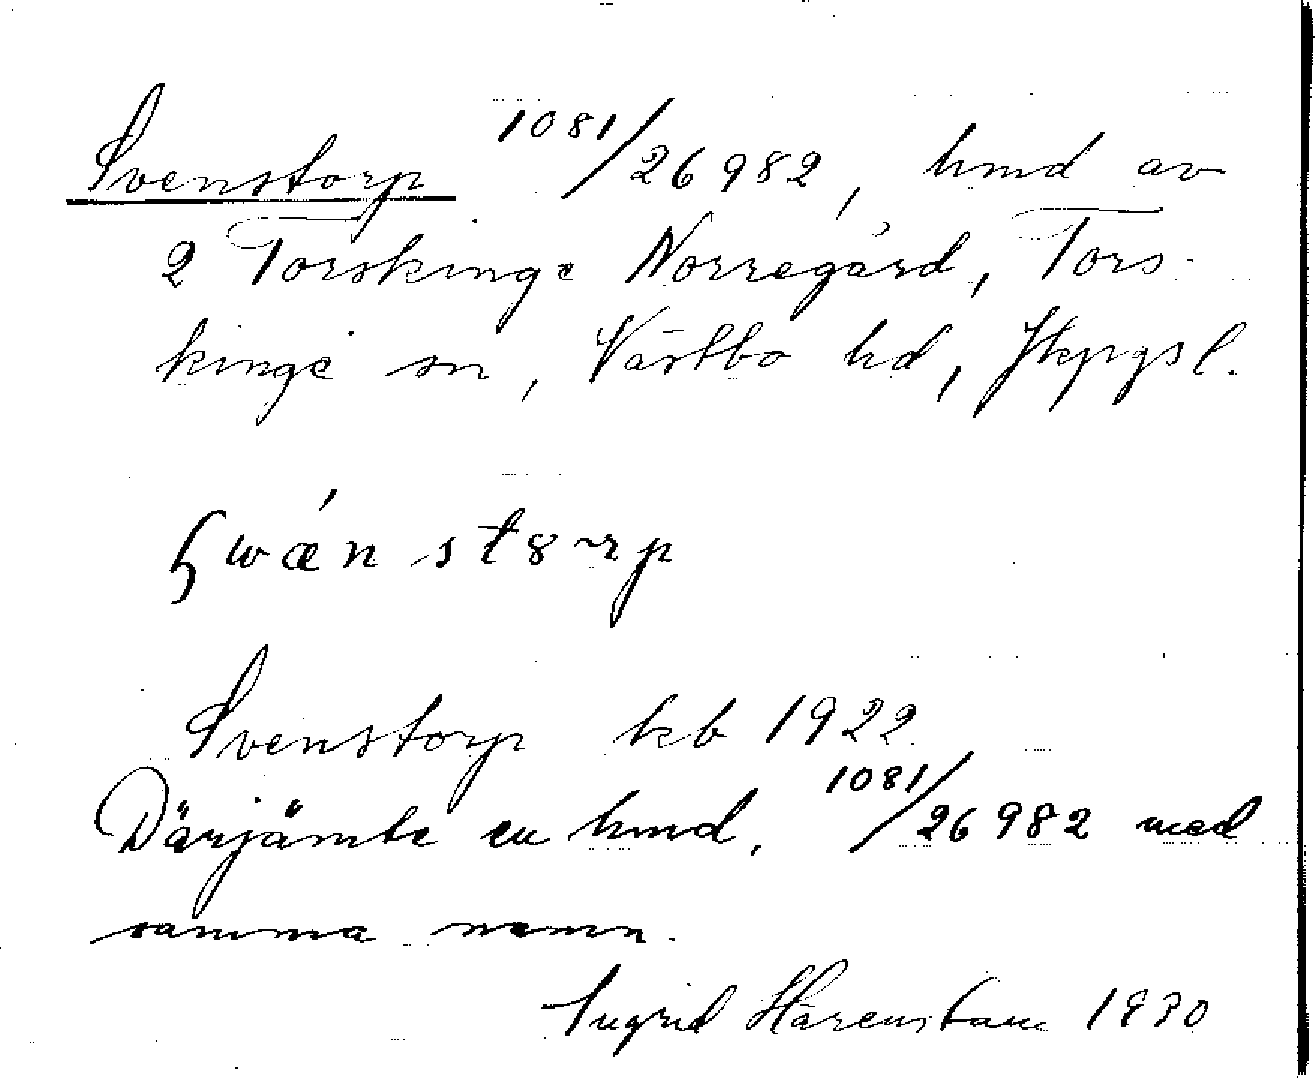 Svenstorp 1081/26982, hmd av
2 Torskinge Norregård, Tors-
kinge sn, Västbo hd, Jkpgsl.
swǽnstȣrp
Svenstorp kb 1922
Därjämte en hmd. 1081/26982 med
samma namn.
Ingrid Härenstam 1930